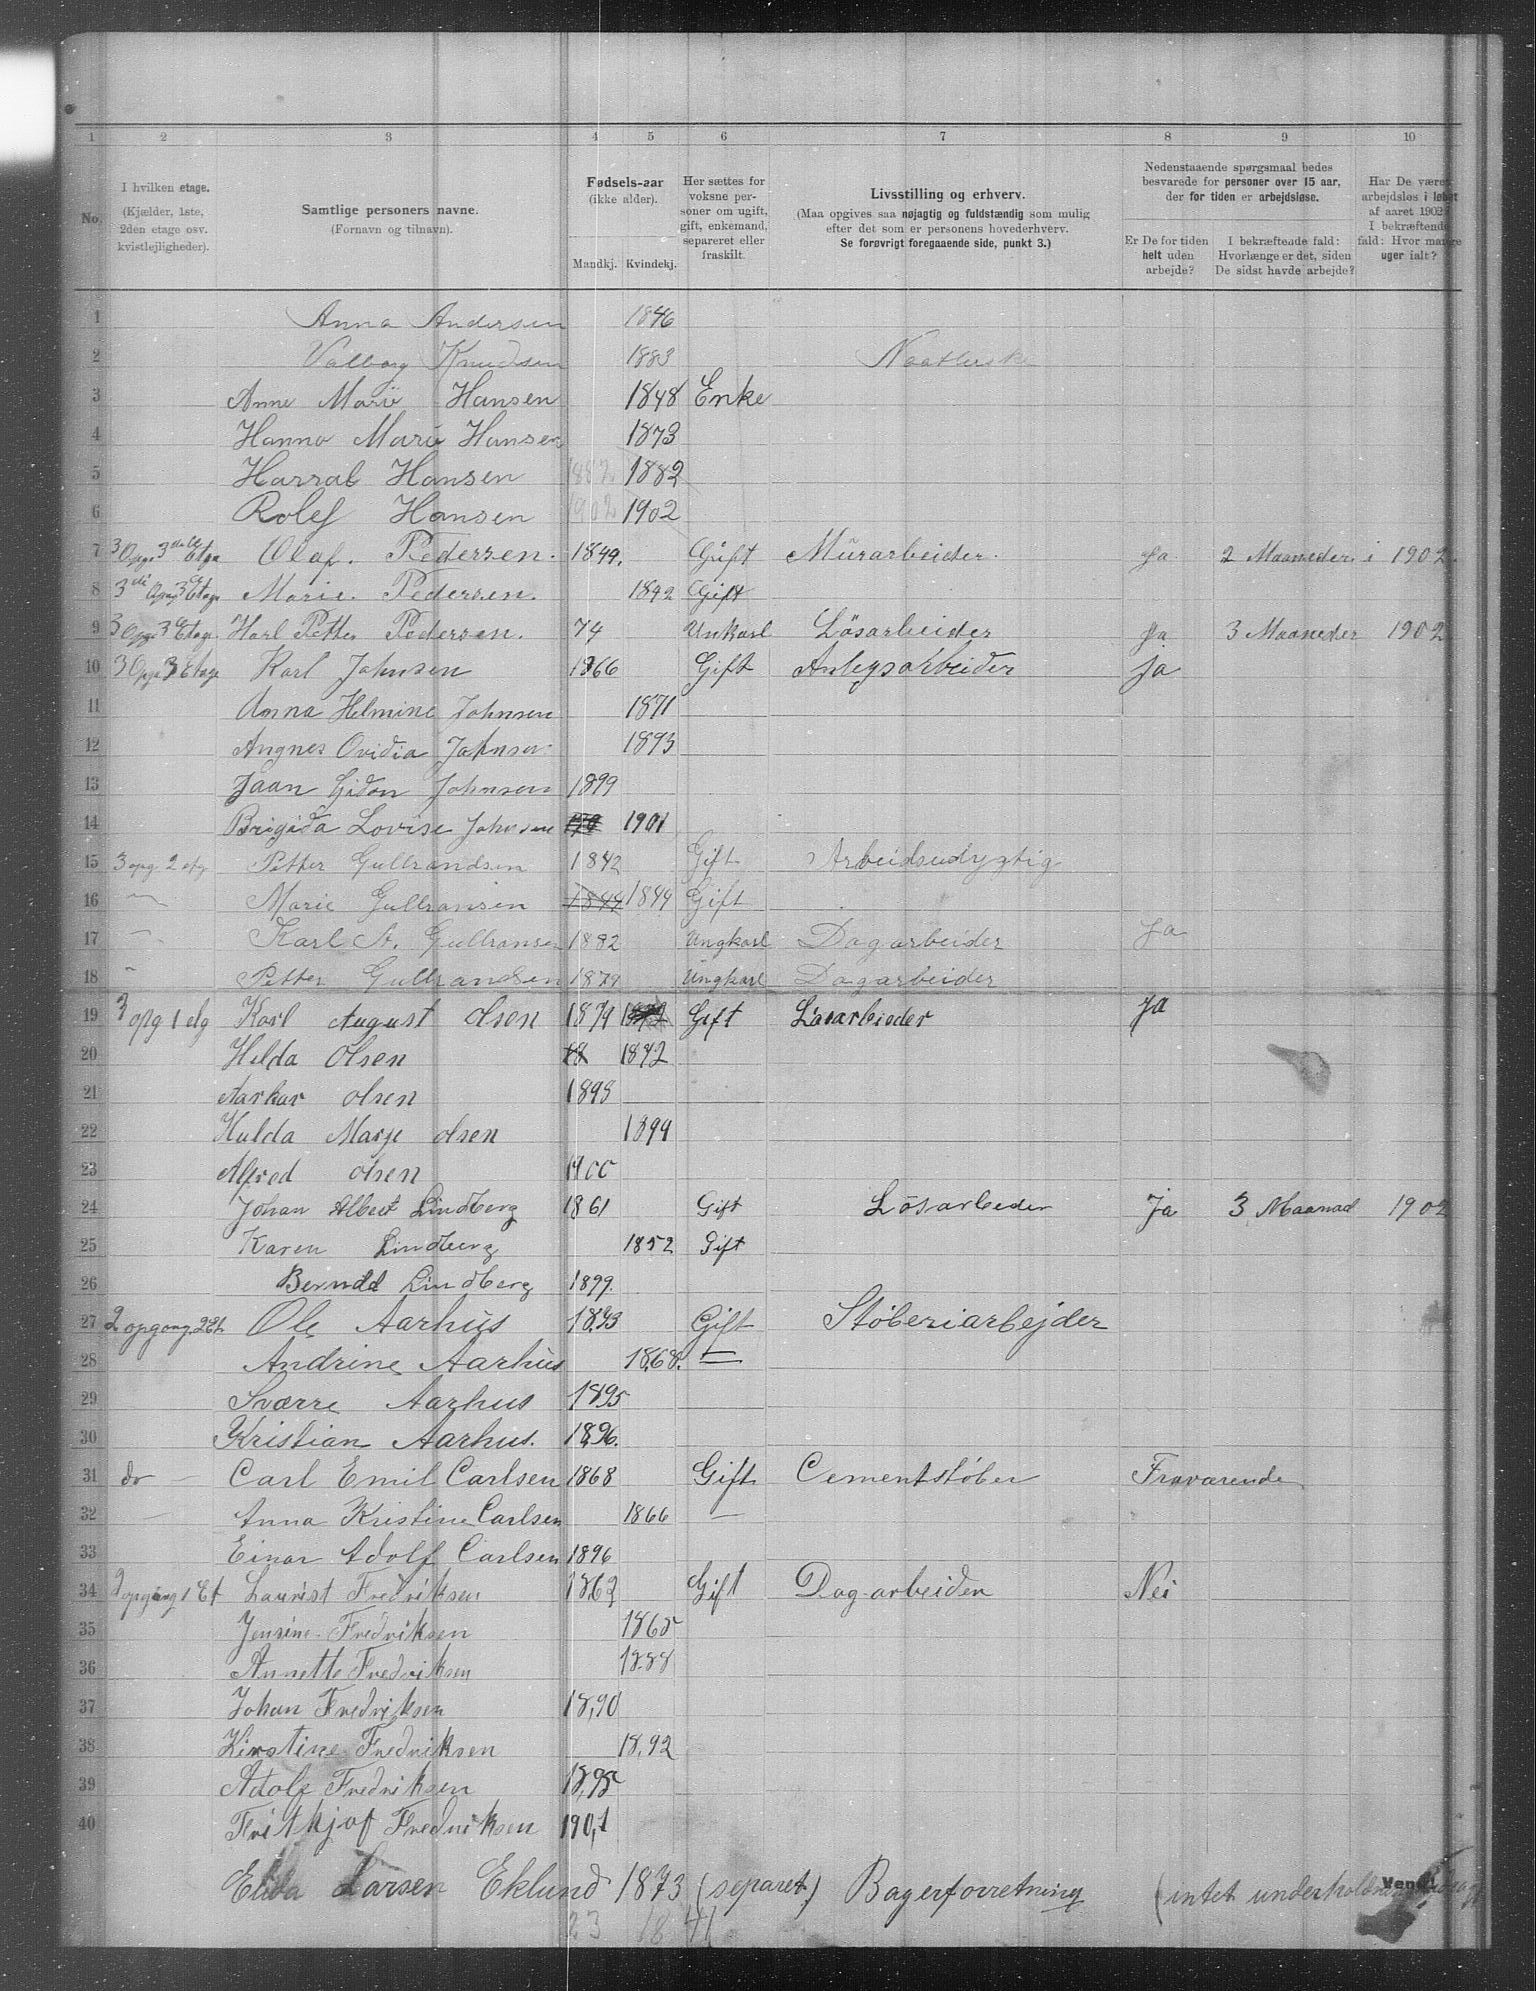 1 2 3 4 5 6 7 8 9 10
No.
I hvilken etage.
(Kjælder, 1ste,
2den etage osv.
kvistlejligheder).
Samtlige personers navne.
(Fornavn og tilnavn).
Fødsels-aar
(ikke alder).
Mandkj. Kvindekj.
Her sættes for
voksne per-
soner om ugift,
gift, enkemand,
separeret eller
fraskilt.
Livsstilling og erhverv.
(Maa opgives saa nøjagtig og fuldstændig som mulig
efter det som er personens hovederhverv.
Se forøvrigt foregaaende side, punkt 3.)
Nedenstaaende spørgsmaal bedes
besvarede for personer over 15 aar,
der for tiden er arbejdsløse.
Er De for tiden
helt uden
arbejde?
I bekræftende fald:
Hvorlænge er det, siden
De sidst havde arbejde?
Har De været
arbejdsløs i løbet
af aaret 1902?
I bekræftende
fald: Hvor mange
uger ialt?
1 Anna Andersen 1846
2 Valborg Knudsen 1883
3 Anne Marie Hansen 1848 Enke
4 Hanna Marie Hansen 1873
5 Harral Hansen 1882 1882
6 Rolef Hansen 1902 1902
7 3 Opg. 3die Etage Olaf. Pedersen. 1849. Gift Murarbeider. Ja 2 Maaneder i 1902.
8 3di Opg 3 Etage Marie. Pedersen. 1842 Gift
9 3 Opg. 3 Etage. Karl Petter Pedersen. 74 Unkarl Løsarbeider Ja 3 Maaneder 1902
10 3 Opg. 3 Etage Karl Johnsen 1866 Gift Anlegsarbeider ja
11 Anna Helmine Johnsen 1871
12 Angnes Ovidia Johnsen 1893
13 Jaan Gidon Johnsen 1899
14 Brigida Lovise Johnsen 1901
15 3 opg 2 etg Petter Gulbrandsen 1842 Gift Arbeidsudygtig
16 Marie Gulbransen 1844 1844 Gift
17 Karl A. Gulbransen 1882 Ungkarl Dagarbeider Ja
18 Petter Gulbrandsen 1879 Ungkarl Dagarbeider
19 3 opg 1 etg Karl August Olsen 1874 Gift Løsarbieder Ja
20 Helda Olsen 18 1872
21 Aarkar Olsen 1898
22 Hulda Marje Olsen 1899
23 Alfred Olsen 1900
24 Johan Albert Lindberg 1861 Gift Løsarbeder Ja 3 Maanad 1902
25 Karen Lindberg 1852 Gift
26 Berndd Lindberg 1899.
27 2 opgang 2 Et. Ole Aarhus 1873 Gift Støberiarbejder
28 Andrine Aarhus 1868. —
29 Sværre Aarhus 1895
30 Kristian Aarhus. 1896.
31 do — Carl Emil Carlsen 1868 Gift Cementstøber Fraværende
32 — Anna Kristine Carlsen 1866 —
33 Einar Adolf Carlsen 1896
34 2 opgang 1 Et Laurist Fredriksen 1862 Gift Dag-arbeiden Nei
35 Jensine Fredriksen 1865
36 Annette Fredriksen 1888
37 Johan Fredriksen 1890
38 Kirstine Fredriksen 1892
39 Adolf Fredriksen 1895
40 Frithjof Fredriksen 1901
Elida Larsen Eklund 1873 (separet) Bagerforretning (intet underholdning
Vend!
23 18 41